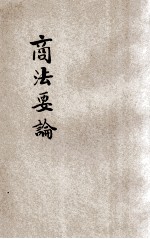 商法要論